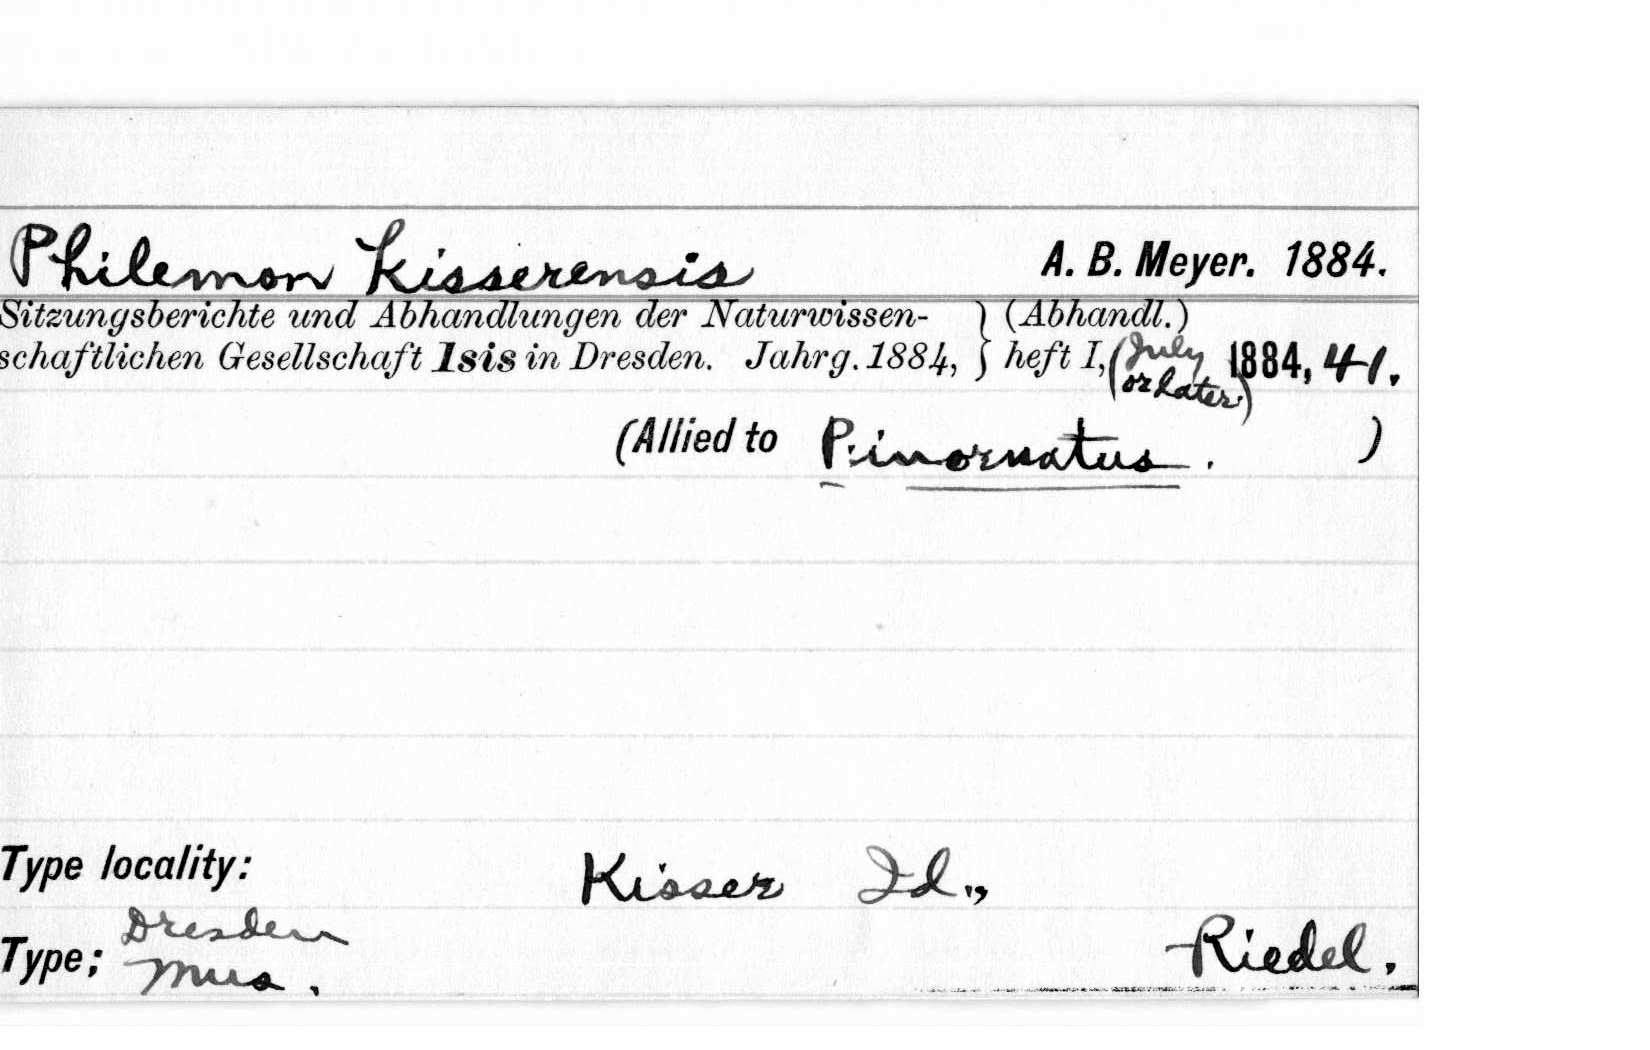 Philemon Kisserensis A. B. Meyer. 1884.
Sitzungsberichte und Abhandlungen der Naturwissen- } (Abhandl.)
schaftlichen Gesellschaft Isis in Dresden. Jahrg. 1884, } heft I, (July 1884, 41.
or later.)
(Allied to P. inornatus. )
Type locality: Kisser Id.,
Dresden
Type; Mus. Riedel.